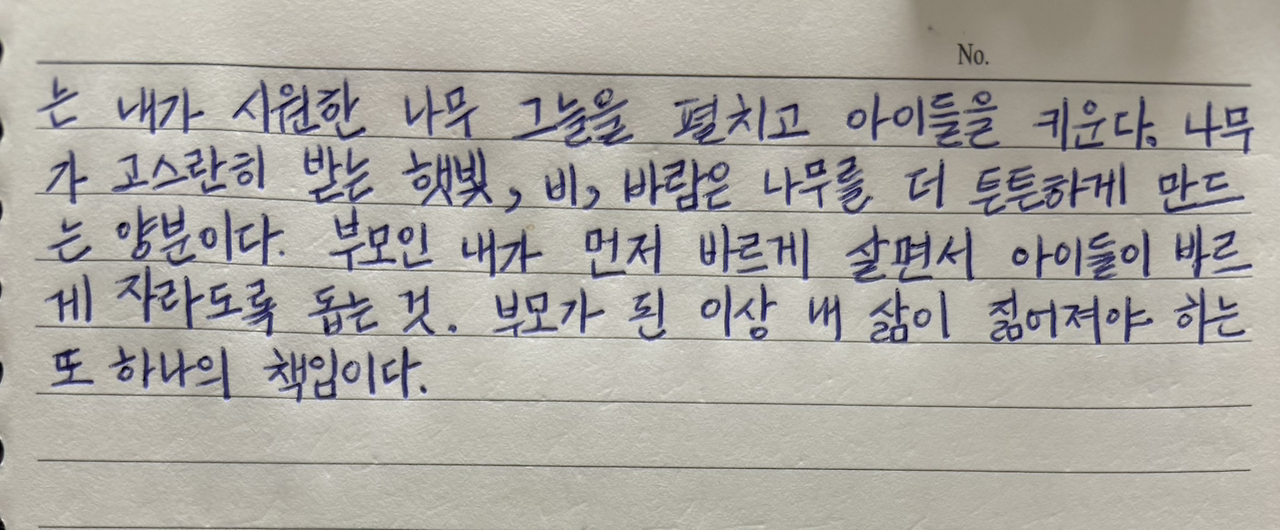 No.
는 내가 시원한 나무 그늘을 펼치고 아이들을 키운다. 나무
가 고스란히 받는 햇빛, 비, 바람은 나무를 더 튼튼하게 만드
는 양분이다. 부모인 내가 먼저 바르게 살면서 아이들이 바르
게 자라도록 돕는 것. 부모가 된 이상 내 삶이 짊어져야 하는
또 하나의 책임이다.